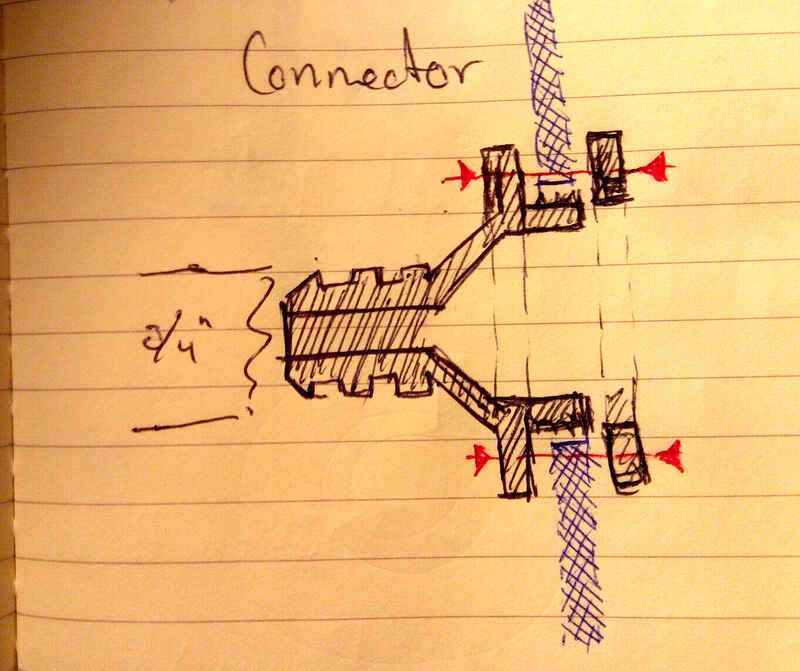 Connector
3/4"